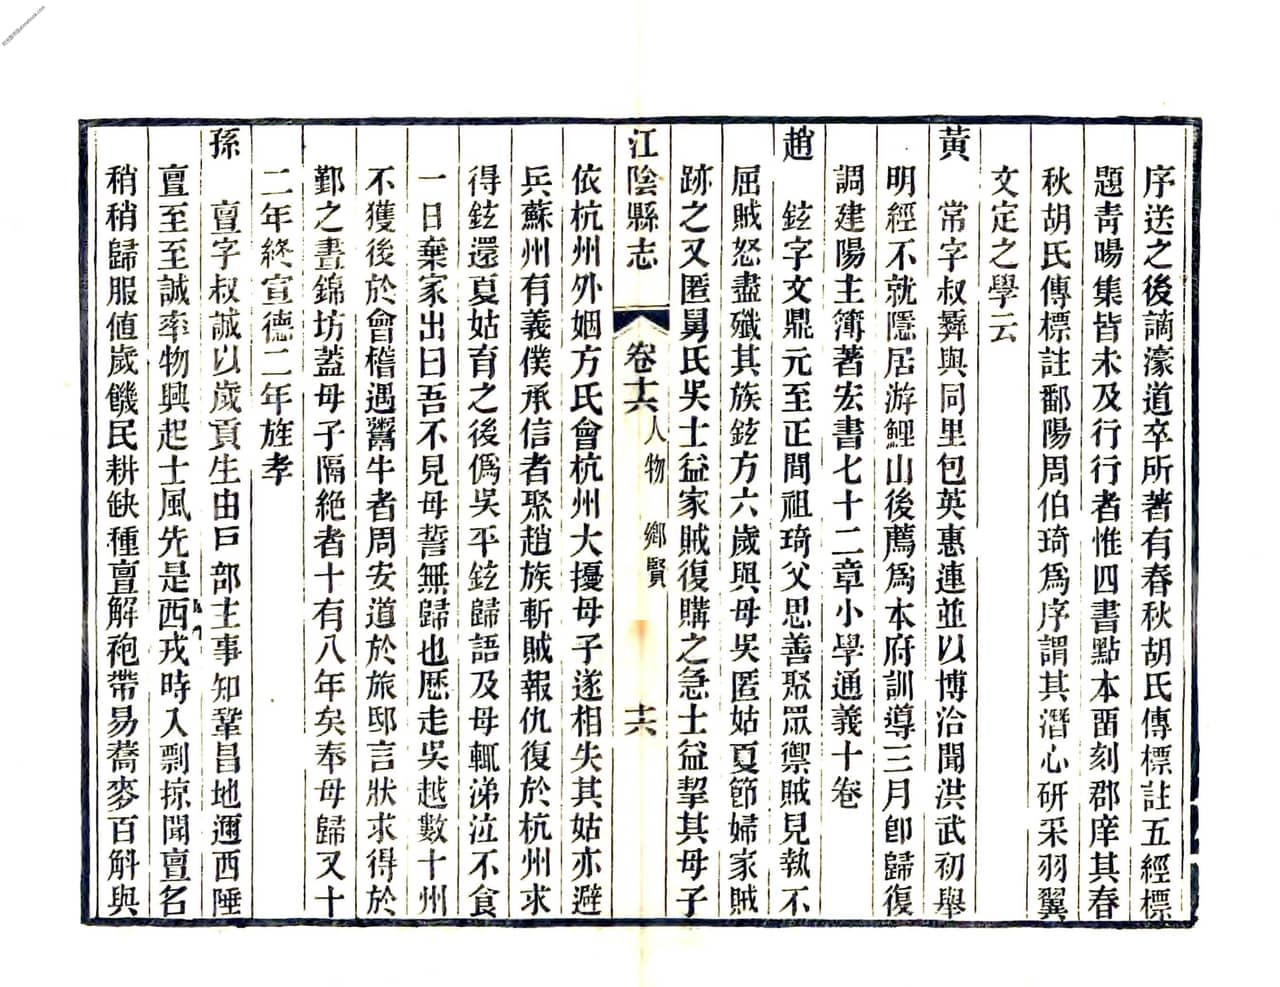 序送之後謫濠道卒所著有春秋胡氏傳標註五經標
題靑暘集皆未及行行者惟四書點本畱刻郡庠其春
秋胡氏傳標註鄱陽周伯琦爲序謂其潛心研采羽翼
文定之學云
黃常字叔彝與同里包英惠連並以博洽聞洪武初舉
明經不就隱居游鯉山後薦爲本府訓導三月卽歸復
調建陽主簿著宏書七十二章小學通義十卷
趙鉉字文鼎元至正間祖琦父思善聚眾禦賊見執不
屈賊怒盡殲其族鉉方六歲與母吳匿姑夏節婦家賊
跡之又匿舅氏吳士益家賊復購之急士益挈其母子
江陰縣志 卷十六 人物 鄉賢 十六
依杭州外姻方氏會杭州大擾母子遂相失其姑亦避
兵蘇州有義僕承信者聚趙族斬賊報仇復於杭州求
得鉉還夏姑育之後僞吳平鉉歸語及母輒涕泣不食
一日棄家出曰吾不見母誓無歸也歷走吳越數十州
不獲後於會稽遇鬻牛者周安道於旅邸言狀求得於
鄞之晝錦坊蓋母子隔絶者十有八年矣奉母歸又十
二年終宣德二年旌孝
孫亶字叔誠以歲貢生由戸部主事知鞏昌地邇西陲
亶至至誠率物興起士風先是西戎時入剽掠聞亶名
稍稍歸服値歲饑民耕缺種亶解袍帶易蕎麥百斛與